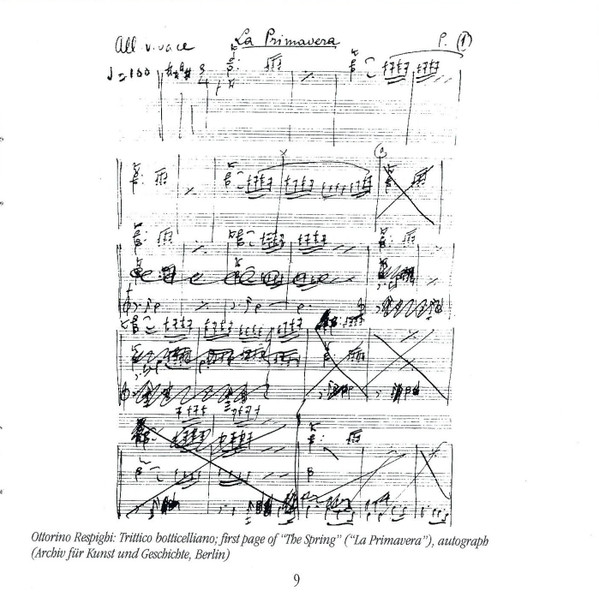 All. vivace La Primavera P. (1)
♩=100
Ottorino Respighi: Trittico botticelliano; first page of "The Spring" ("La Primavera"), autograph
(Archiv für Kunst und Geschichte, Berlin)
9